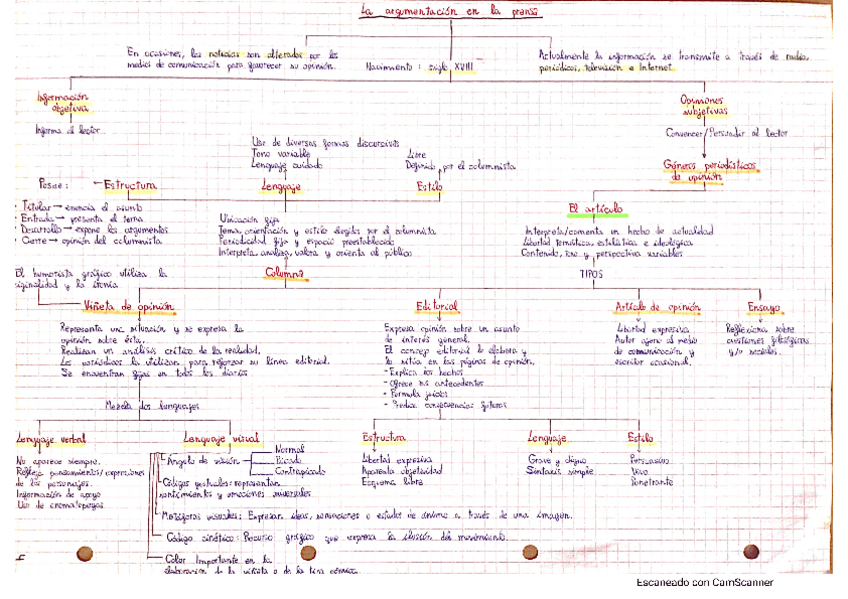 La argumentación en la prensa
En ocasiones, las noticias son alteradas por los
medios de comunicación para favorecer su opinión.
Nacimiento: siglo XVIII
Actualmente la información se transmite a través de radio,
periódicos, televisión e Internet.
Información
objetiva
Informa al lector
Opiniones
subjetivas
Convencer/Persuadir al lector
Géneros periodísticos
de opinión
Uso de diversas formas discursivas
Tono variable
Lenguaje cuidado
Libre
Definido por el columnista
Posee:
Estructura
Lenguaje
Estilo
· Titular → enuncia el asunto
· Entrada → presenta el tema
· Desarrollo → expone los argumentos
· Cierre → opinión del columnista
Ubicación fija
Tema, orientación y estilo elegidos por el columnista
Periodicidad fija y espacio preestablecido
Interpreta, analiza, valora y orienta al público
El artículo
Interpreta/comenta un hecho de actualidad
Libertad temática, estilística e ideológica
Contenido, tono y perspectiva variables
El humorista gráfico utiliza la
originalidad y la ironía
Columna
TIPOS
Viñeta de opinión
Editorial
Artículo de opinión
Ensayo
Representa una situación y se expresa la
opinión sobre ésta.
Realizan un análisis crítico de la realidad.
Los periódicos la utilizan para reforzar su línea editorial.
Se encuentran fijas en todos los diarios
Expresa opinión sobre un asunto
de interés general.
El consejo editorial lo elabora y
lo sitúa en las páginas de opinión.
- Explica los hechos
- Ofrece sus antecedentes
- Formula juicios
- Predice consecuencias futuras
Libertad expresiva.
Autor ajeno al medio
de comunicación y
escritor ocasional.
Reflexiona sobre
cuestiones filosóficas
y/o sociales.
Mezcla dos lenguajes
Lenguaje verbal
Lenguaje visual
Estructura
Lenguaje
Estilo
No aparece siempre.
Refleja pensamientos/expresiones
de los personajes.
Información de apoyo
Uso de onomatopeyas
Ángulo de visión
Normal
Picado
Contrapicado
Códigos gestuales: representan
sentimientos y emociones universales
Metáforas visuales: Expresan ideas, sensaciones o estados de ánimo a través de una imagen.
Código cinético: Recurso gráfico que expresa la ilusión del movimiento.
Color Importante en la
elaboración de la viñeta o de la tira cómica.
Libertad expresiva
Aparenta objetividad
Esquema libre
Grave y digno
Sintaxis simple
Persuasivo
Vivo
Penetrante
Escaneado con CamScanner